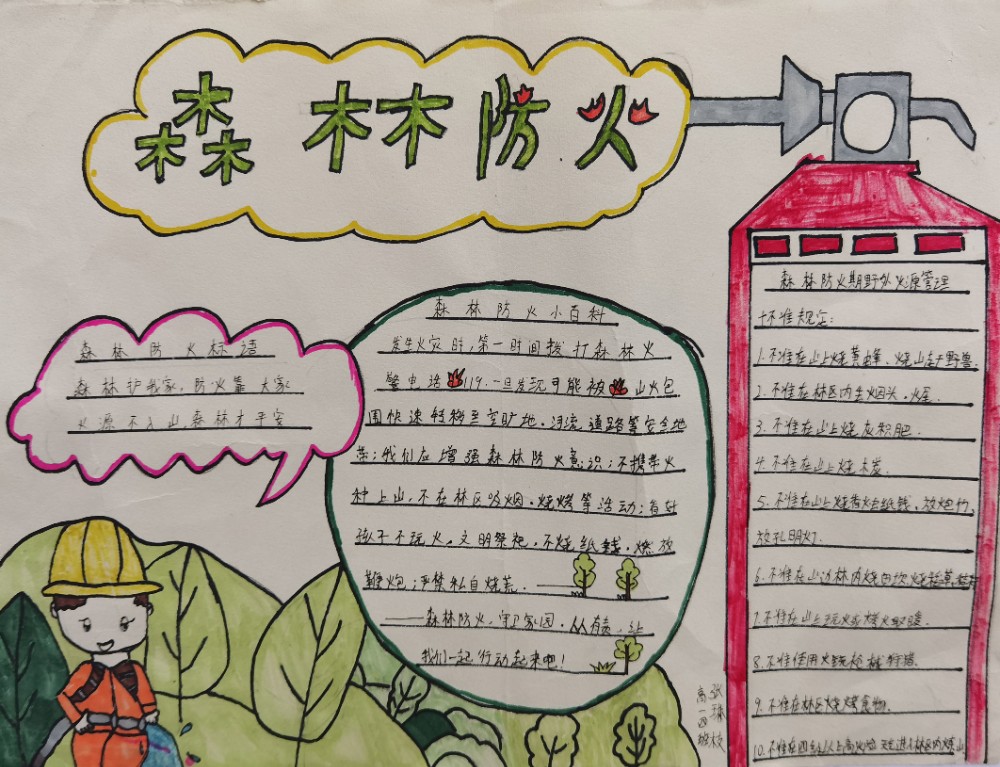 森林防火
森林防火标语
森林护我家,防火靠大家
火源不入山森林才平安
森林防火小百科
发生火灾时,第一时间拨打森林火
警电话119.一旦发现可能被山火包
围快速转移至空旷地、河流道路等安全地
带;我们应增强森林防火意识;不携带火
种上山,不在林区吸烟、烧烤等活动;看好
孩子不玩火,文明祭祀,不烧纸钱、燃放
鞭炮;严禁私自烧荒.
——森林防火,守卫家园,人人有责,让
我们一起行动起来吧!
森林防火期野外火源管理
十不准规定:
1.不准在山上烧黄蜂、烧山赶野兽.
2.不准在林区内丢火烟头、火星.
3.不准在山上烧灰积肥.
4.不准在山上烧木炭.
5.不准在山上烧香烧纸钱、放炮竹、
放孔明灯.
6.不准在山边林内烧田坎烧杂草、秸秆
7.不准在山上玩火或烤火取暖.
8.不准使用火铳枪械狩猎.
9.不准在林区烧烤食物.
10.不准在四级以上高火险天进入林区内炼山
高一四班
张 校